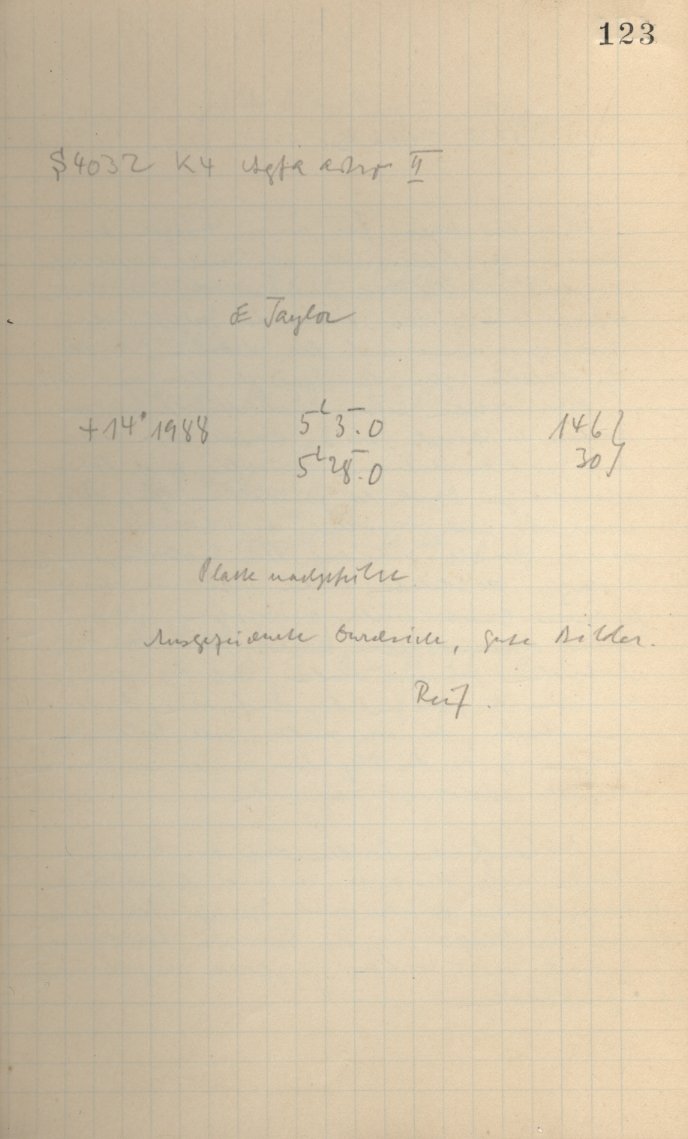 123
S4032 K4 Agfa astro II
Œ Taylor
+14° 1988 5ʰ 3ᵐ.0 146 }
5ʰ 28ᵐ.0 30 }
Platte
Ausgezeichnete Durchsicht, gute Bilder.
Reif.